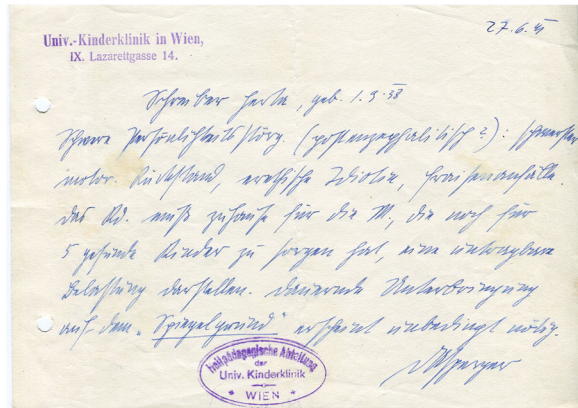 27.6.41
Univ.-Kinderklinik in Wien,
IX. Lazarettgasse 14.
Schreiber Herta, geb. 1.9.38
Schwere Persönlichkeitsstörg. (postenzephalitisch?): schwerster
motor. Rückstand, erethische Idiotie, Fraisenanfälle.
Das Kd. muß zuhause für die M., die noch für
5 gesunde Kinder zu sorgen hat, eine untragbare
Belastung darstellen. Dauernde Unterbringung
auf dem „Spiegelgrund" erscheint unbedingt nötig.
DrAsperger
heilpädagogische Abteilung
der
Univ. Kinderklinik
* WIEN *